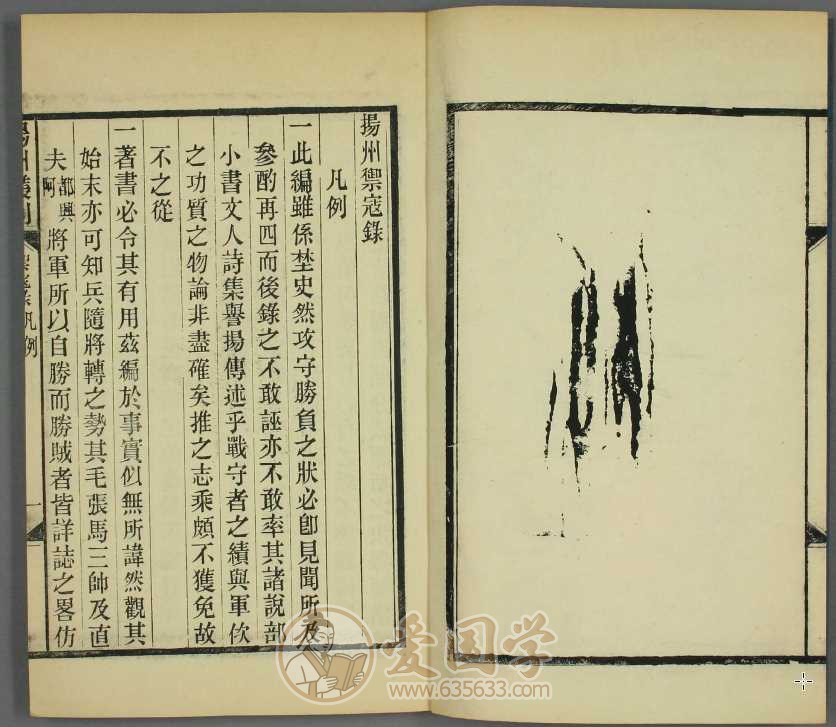 揚州禦寇錄
凡例
一此編雖係埜史然攻守勝負之狀必卽見聞所及
參酌再四而後錄之不敢誣亦不敢率其諸說部
小書文人詩集譽揚傳述乎戰守者之績與軍佽
之功質之物論非盡確矣推之志乘頗不獲免故
不之從
一著書必令其有用茲編於事實似無所諱然觀其
始末亦可知兵隨將轉之勢其毛張馬三帥及直
夫都興阿將軍所以自勝而勝賊者皆詳誌之畧仿
揚州叢刻
凡例
一
爱国学
www.635633.com